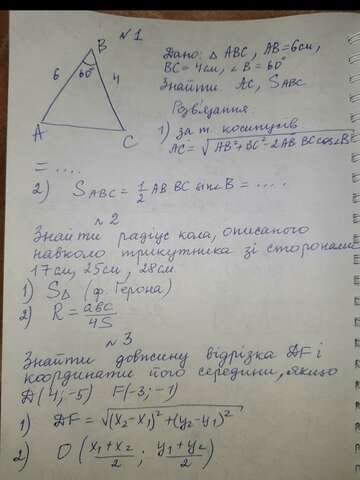 №1
B
6
60°
4
A
C
Дано: △ ABC, AB=6см,
BC=4см, ∠B=60°
Знайти: AC, SABC
Розв'язання:
1) за т. косинусів
AC=√AB²+BC²-2AB BCcos∠B
= ....
2) SABC = 1/2 AB BC sin∠B = ....
№2
Знайти радіус кола, описаного
навколо трикутника зі сторонами
17см, 25см, 28см
1) S△ (ф. Герона)
2) R = abc/4S
№3
Знайти довжину відрізка DF і
координати його середини, якщо
D(4;-5) F(-3;-1)
1) DF = √(x₂-x₁)²+(y₂-y₁)²
2) O (x₁+x₂/2 ; y₁+y₂/2)